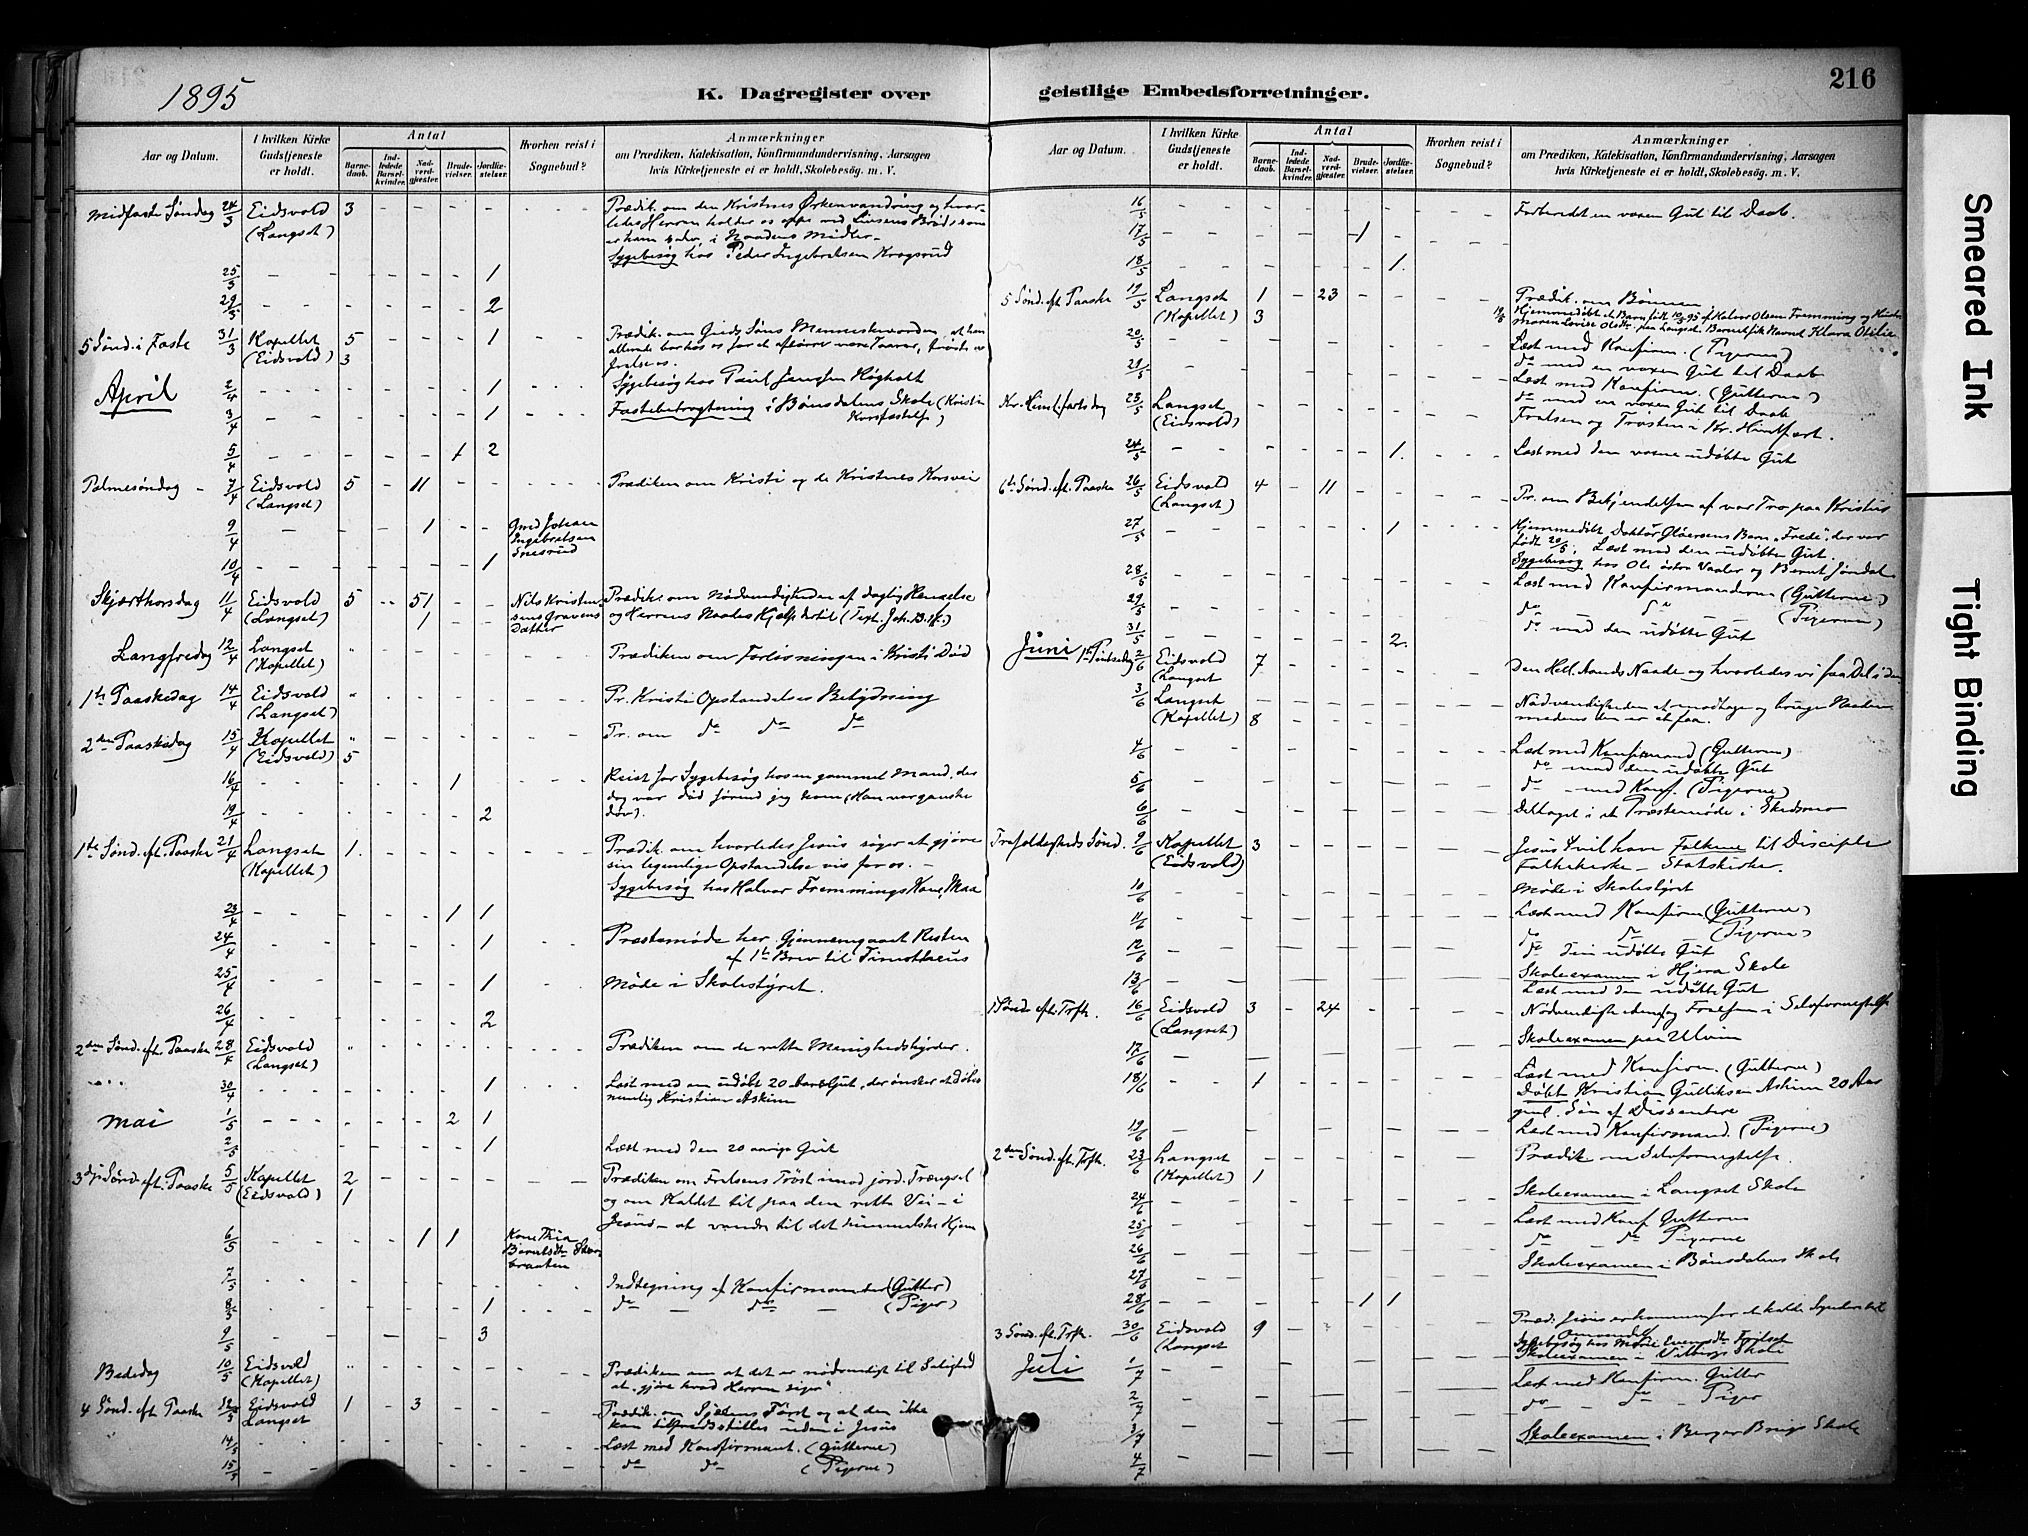 1895
K. Dagregister over
geistlige Embedsforretninger.
216
Aar og Datum.
I hvilken Kirke Gudstjeneste er holdt.
Antal
Barne-daab.
Ind-ledede Barsel-kvinder.
Nad-verd-gjæster.
Brude-vielser.
Jordfæ-stelser.
Hvorhen reist i Sognebud?
Anmærkninger
om Prædiken, Katekisation, Konfirmandundervisning, Aarsagen
hvis Kirketjeneste ei er holdt, Skolebesøg. m. V.
Midfaste Søndag 24/3 Eidsvold 3 - - - - - Prædik. om den Kristnes Ørkenvandring og hvor-
(Langset) ledes Herren holder os oppe ved Livsens Brød, som
er ham selv, i Naadens Midler -
Sygebesøg hos Peder Ingebretsen Krogsrud
25/3 - - - - - 1
29/3 - - - - - 2
5 Sønd. i Faste 31/3 Kapellet 5 - - - 1 Prædik. om Guds Søns Menneskevorden, at han
(Eidsvold) 3
April 2/4 - - - - 1 - - - Sygebesøg hos Paul Jensen Høgholt
3/4 - - - - 1 - - - Fastebetragtning i Bønsdalens Skole (Kristi
Korsfæstelse)
5/4 - - - - 1 2
Palmesøndag - 7/4 Eidsvold 5 - 11 - - - Prædiken om Kristi og de Kristnes Korsvei
(Langset)
9/4 - - - 1 - - Gmd Johan
Ingebretsen
Snesrud
10/4 - - - - - 1
Skjærthorsdag 11/4 Eidsvold 5 - 51 - - Nils Kristen- Prædik. om Nødvendigheden af daglig Renselse
(Langset) 1 sens Gravens og Herrens Naades Hjælp dertil (Text. Joh. 13. ff.)
Datter
Langfredag 12/4 Langset " - - - - Prædiken om Forsoningen i Kristi Død
(Kapellet)
1ste Paaskedag 14/4 Eidsvold " - - - - Pr. Kristi Opstandelses Betydning
(Langset)
2den Paaskedag 15/4 Kapellet " - - - - Pr. om do do do
(Eidsvold) 5
16/4 - - - - 1 - - - Reist for Sygebesøg hos en gammel Mand, der
dog var død førend jeg kom (Han var ganske
19/4 - - - - - 2 døv).
1ste Sønd. eft. Paaske 21/4 Langset 1. - - - - Prædik. om hvorledes Jesus søger at gjøre
(Kapellet) sin legemlige Opstandelse vis for os. -
Sygebesøg hos Halvor Fremmings Kone, Maa
23/4 - - - - 1 1
24/4 - - - - - 1 - - Præstemøde her. Gjennemgaaet Resten
af 1ste Brev til Timotheus
25/4 - - - - - 1 - - Møde i Skolestyret.
26/4 - - - - - 2
2den Sønd. eft. Paaske 28/4 Eidsvold " - - - - Prædiken om de rette Menighedshyrder.
(Langset)
30/4 - - - - - 1 - - Læst med en udøbt 20 Aars Gut, der ønsker at døbes
nemlig Kristian Askim
Mai 1/5 - - - - 2 1
2/5 - - - - - 1 Læst med den 20 aarige Gut
3die Sønd. eft. Paaske 5/5 Kapellet 2 - - - - Prædiken om Frelsens Trøst imod jord. Trængsel
(Eidsvold) 1 og om Kaldet til paa den rette Vei - i
Jesus - at vandre til det himmelske Hjem
6/5 - - - 1 1 Kone Thia
Berntsdtr
braaten
7/5 - - - - - - - - Indtegning af Konfirmanter (Gutter)
8/5 - - - - - 1 - - - do - do - (Piger)
9/5 - - - - 3
Bededag 10/5 Eidsvold " - - - - Prædiken om at det er nødvendigt til Salighed
(Kapellet) at "gjøre hvad Herren siger".
4 Sønd. eft. Paaske 12/5 Eidsvold 1 - 3 - - Prædik. om Sjælens Tørst og at den ikke
Langset kan tilfredsstilles uden i Jesus
14/5 - - - - - - Læst med Konfirmant. (Gutterne)
15/5 - - - - - - do do (Pigerne)
Aar og Datum.
I hvilken Kirke Gudstjeneste er holdt.
Antal
Barne-daab.
Ind-ledede Barsel-kvinder.
Nad-verd-gjæster.
Brude-vielser.
Jordfæ-stelser.
Hvorhen reist i Sognebud?
Anmærkninger
om Prædiken, Katekisation, Konfirmandundervisning, Aarsagen
hvis Kirketjeneste ei er holdt, Skolebesøg. m. V.
16/5 - - - - - - Forberedet en voxen Gut til Daab.
17/5 - - - - 1
18/5 - - - - - 1.
5 Sønd. eft. Paaske 19/5 Langset 1 - 23 - - - Prædik. om Bønnen
(Kapellet) 3 Hjemmedøbt et Barn født 12/5 95 af Halvor Olsen Fremming og Hustru
Maren Lovise Olsdtr. paa Langset. Barnet fik Navnet Klara Otilie
20/5 - - - - - Læst med Konfirm. (Pigerne)
do med en voxen Gut til Daab
21/5 - - - - - Læst med Konfirm. (Gutterne)
do med en voxen Gut til Daab
Kr. Himlfartsdag 23/5 Langset - - - - - Frelsen og Trøsten i Kr. Himlfart.
(Eidsvold)
24/5 - - - - - 1. - - - Læst med den voxne udøbte Gut
6te Sønd. eft. Paaske 26/5 Eidsvold 4 - 11 - - - Pr. om Bekjendelsen af vor Tro paa Kristus
(Langset)
27/5 - - - - - 1 - - Hjemmedøbt Doktor Gløersens Barn "Frede", der var
født 20/5. Læst med den udøbte Gut.
Sygebesøg hos Ole østre Vaaler og Bernt Jøndal
28/5 - - - - - Læst med Konfirmanderne (Gutterne)
29/5 - - - - - do do (Pigerne)
31/5 - - - - - 2. do med den udøbte Gut
Juni 1ste Pintsedag 2/6 Eidsvold 7 - - - - Den Hell. Aands Naade og hvorledes vi faa Del i den
Langset
3/6 Langset Nødvendigheden at modtage og bruge Naaden
(Kapellet) 8 - - - - medens den er at faa.
4/6 - - - - - Læst med Konfirmand (Gutterne)
do - med den udøbte Gut
5/6 - - - - - do - med Konf. (Pigerne)
6/6 - - - - - Deltaget i et Præstemøde i Skedsmo
Trefoldigheds Sønd. 9/6 Kapellet 3 - - - - Jesus vil have Folkene til Disciple
(Eidsvold) Folkekirke - Statskirke.
10/6 - - - - - Møde i Skolestyret
11/6 - - - - - Læst med Konfirm (Gutterne)
12/6 - - - - - do do (Pigerne)
do Den udøbte Gut
13/6 - - - - - Skoleexamen i Hjera Skole
Læst med den udøbte Gut
1 Sønd. eft. Trft. 16/6 Eidsvold 3 - 24 - - - Nødvendigheden og Frelsen i Selvfornegtelse
(Langset)
17/6 - - - - - Skoleexamen paa Ulvin
18/6 - - 1 - - - Læst med Konfirm. (Gutterne)
Døbt Kristian Gulliksen Askim 20 Aar
gml. Søn af Dissentere
19/6 - - - - - Læst med Konfirmand. (Pigerne)
2den Sønd. eft. Trft. 23/6 Langset - - - - Prædik om Selvfornegtelse.
(Kapellet) 1
24/6 - - - - - Skoleexamen i Langset Skole
25/6 - - - - - Læst med Konf Gutterne
26/6 - - - - - do - do Pigerne
27/6 - - - - - Skoleexamen i Bønsdalens Skole
28/6 - - - - 1 1
3 Sønd. eft. Trft. 30/6 Eidsvold 9 - - - Præd. Jesus er kommen for at kalde Syndere til
(Langset Omvendelse
Sygebesøg hos Marie Evensdtr
Juli 1/7 - - - - - Skoleexamen i Vilbergs Skole
2/7 - - - - - Læst med Konfirm. Gutter
3/7 - - - - - do - do - Piger
4/7 - - - - - Skoleexamen i Berger Brugs Skole
Smeared Ink
Tight Binding